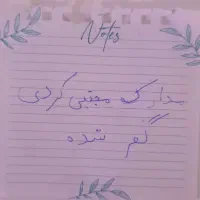 Notes
مدارک مجتبی کردی
گم شده